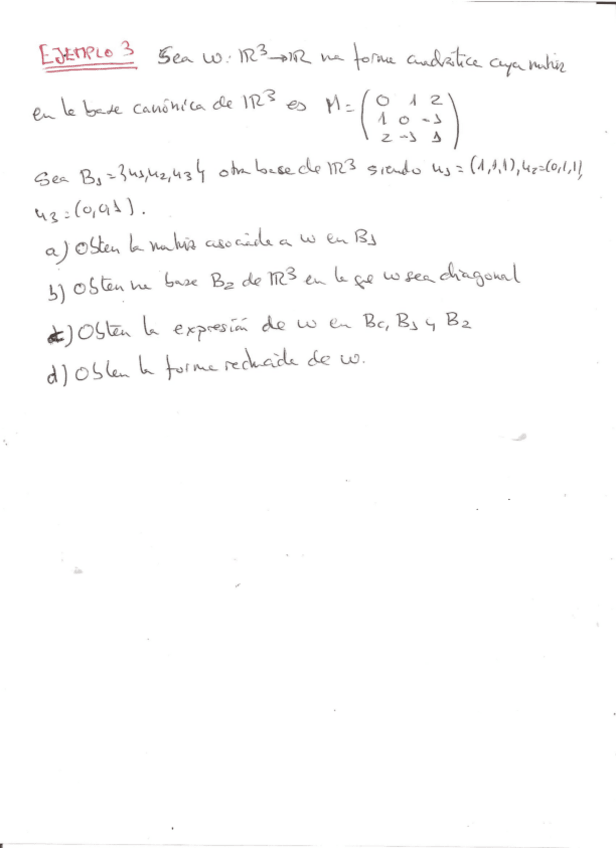 EJEMPLO 3 Sea ω: ℝ³→ℝ una forma cuadrática cuya matriz
en la base canónica de ℝ³ es M = (0 1 2
1 0 -1
2 -1 1)
Sea B₁ = {u₁, u₂, u₃} otra base de ℝ³ siendo u₁ = (1,1,1), u₂=(0,1,1),
u₃ = (0,0,1).
a) Obtén la matriz asociada a ω en B₁
b) Obtén una base B₂ de ℝ³ en la que ω sea diagonal
c) Obtén la expresión de ω en Bc, B₁ y B₂
d) Obtén la forma reducida de ω.